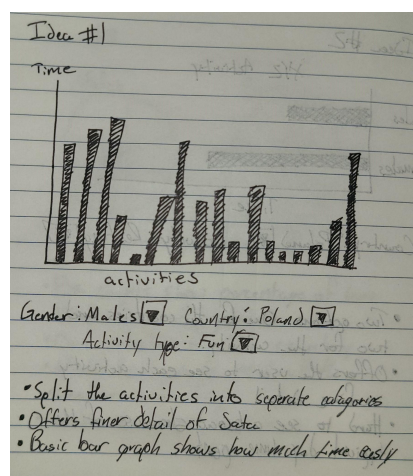 Idea #1
Time
activities
Gender: Males Country: Poland
Activity type: Fun
• Split the activities into seperate catagories
• Offers finer detail of Data
• Basic bar graph shows how much time easily